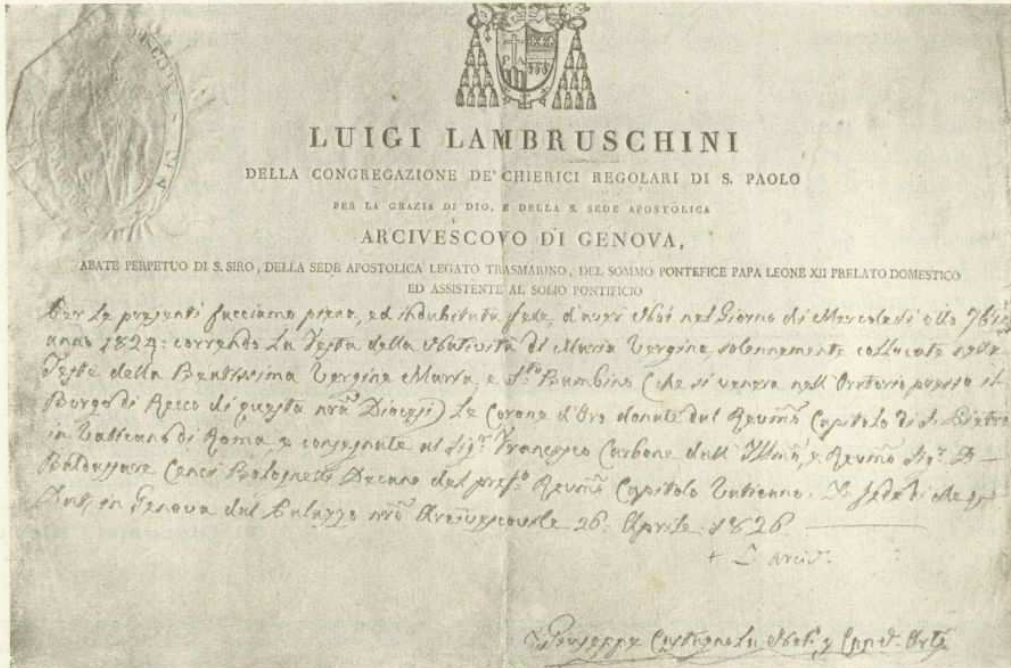 LUIGI LAMBRUSCHINI
DELLA CONGREGAZIONE DE' CHIERICI REGOLARI DI S. PAOLO
PER LA GRAZIA DI DIO, E DELLA S. SEDE APOSTOLICA
ARCIVESCOVO DI GENOVA,
ABATE PERPETUO DI S. SIRO, DELLA SEDE APOSTOLICA LEGATO TRASMARINO, DEL SOMMO PONTEFICE PAPA LEONE XII PRELATO DOMESTICO
ED ASSISTENTE AL SOLIO PONTIFICIO
Per le presenti facciamo piena, ed indubitata fede, d'aver Noi nel Giorno di Mercoledì otto 7bre
anno 1824: correndo la Festa della Natività di Maria Vergine solennemente collocate nelle
Teste della Beatissima Vergine Maria, e Sto. Bambino (che si venera nell'Oratorio presso il
Borgo di Recco di questa nrã Diocesi) le Corone d'Oro donate dal Revmõ Capitolo di S. Pietro
in Vaticano di Roma, e consegnate al Sigr. Francesco Carbone dall'Illmõ, e Revmõ Sigr. D.
Baldassare Cenci Bolognetti Decano del prefo. Revmõ Capitolo Vaticano. In fede di che
Dat. in Genova dal Palazzo nrõ Arcivescovile 26. Aprile 1826.
+ L. Arciv.
Giuseppe